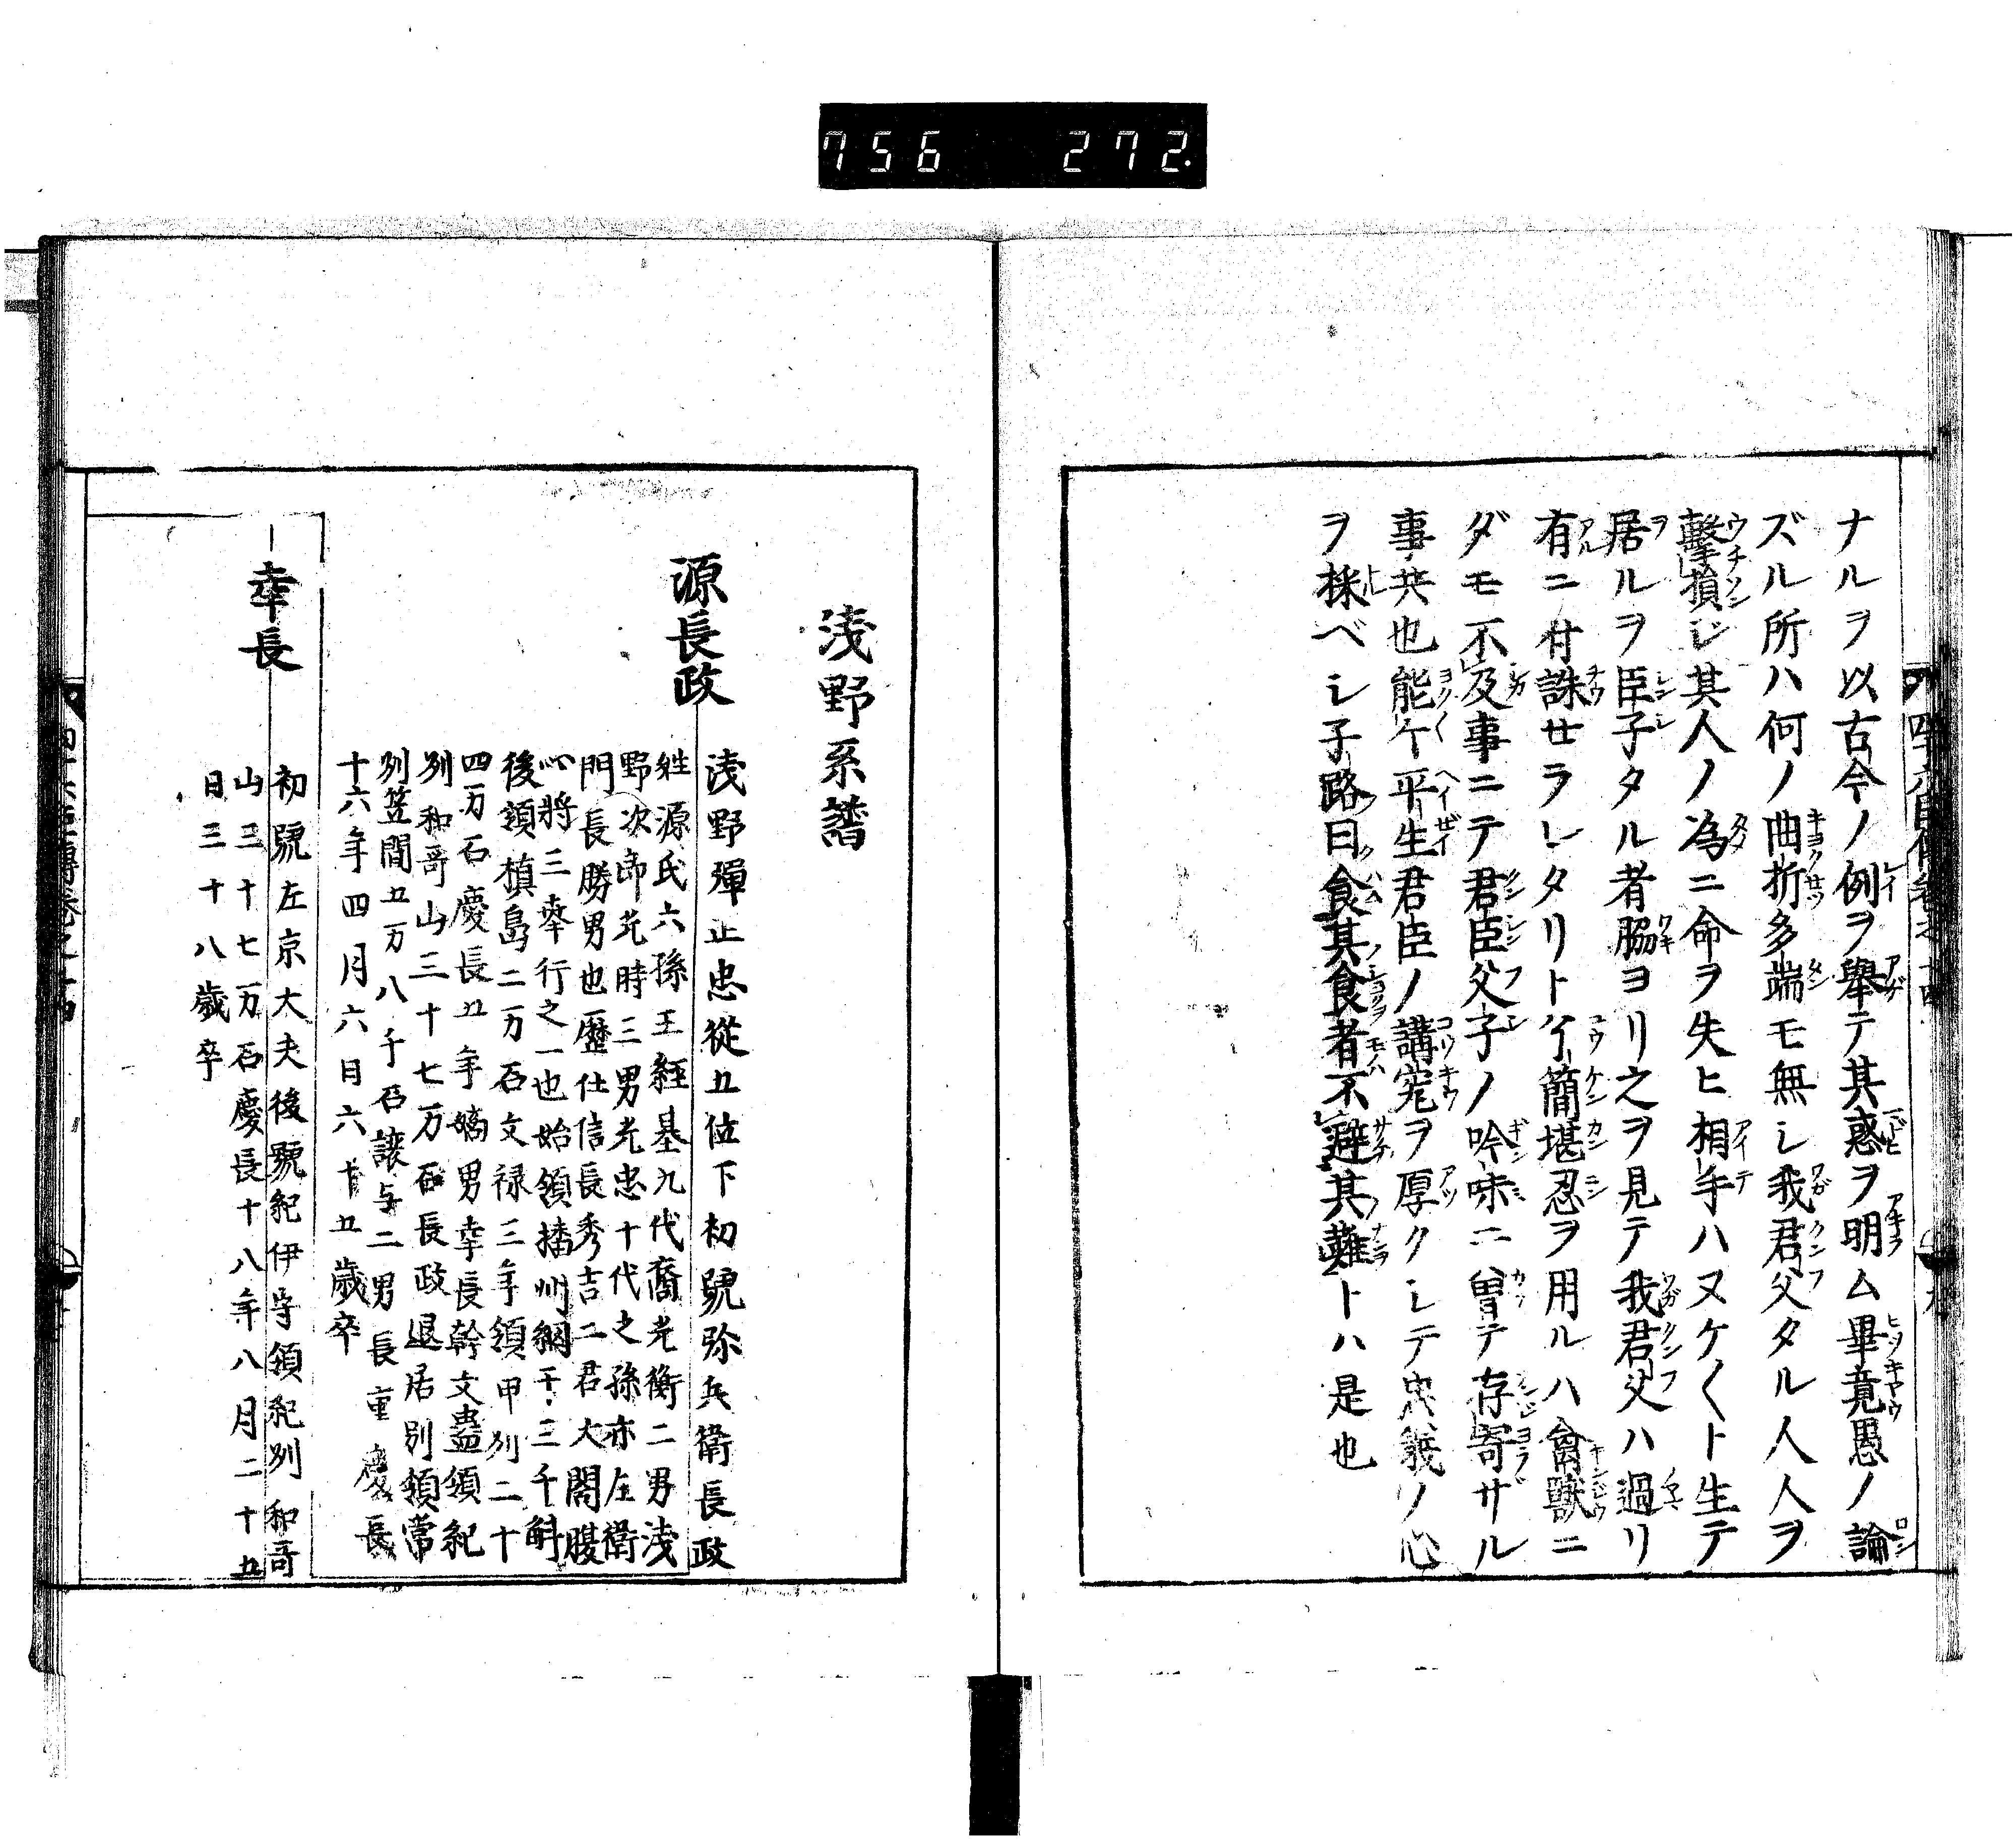 756 272.
ナルヲ以古今ノ例ヲ舉テ其惑ヲ明ム畢竟愚ノ論
ズル所ハ何ノ曲折多端モ無シ我君父タル人人ヲ
擊損シ其人ノ為ニ命ヲ失ヒ相手ハヌケ〱ト生テ
居ルヲ臣子タル者脇ヨリ之ヲ見テ我君父ハ過リ
有ニ付誅せラレタリトケ簡堪忍ヲ用ルハ禽獸ニ
ダモ不及事ニテ君臣父子ノ吟味ニ曽テ存寄ザル
事共也能々平生君臣ノ講究ヲ厚クシテ忠義ノ心
ヲ採ベシ子路曰食其食者不避其難トハ是也
淺野系譜
源長政
淺野彈正忠從五位下初號弥兵衛長政
姓源氏六孫王經基九代裔光衡二男淺
野次郎光時三男光忠十代之孫亦左衛
門長勝男也歷仕信長秀吉二君大閤腹
心將三奉行之一也始領播州網干三千斛
後領槙島二万石文禄三年領甲列二十
四万石慶長五年嫡男幸長幹文蠱領紀
列和哥山三十七万石長政退居別領常
列笠間五万八千石讓与二男長重慶長
十六年四月六日六十五歲卒
幸長
初號左京大夫後號紀伊守領紀列和哥
山三十七万石慶長十八年八月二十五
日三十八歲卒